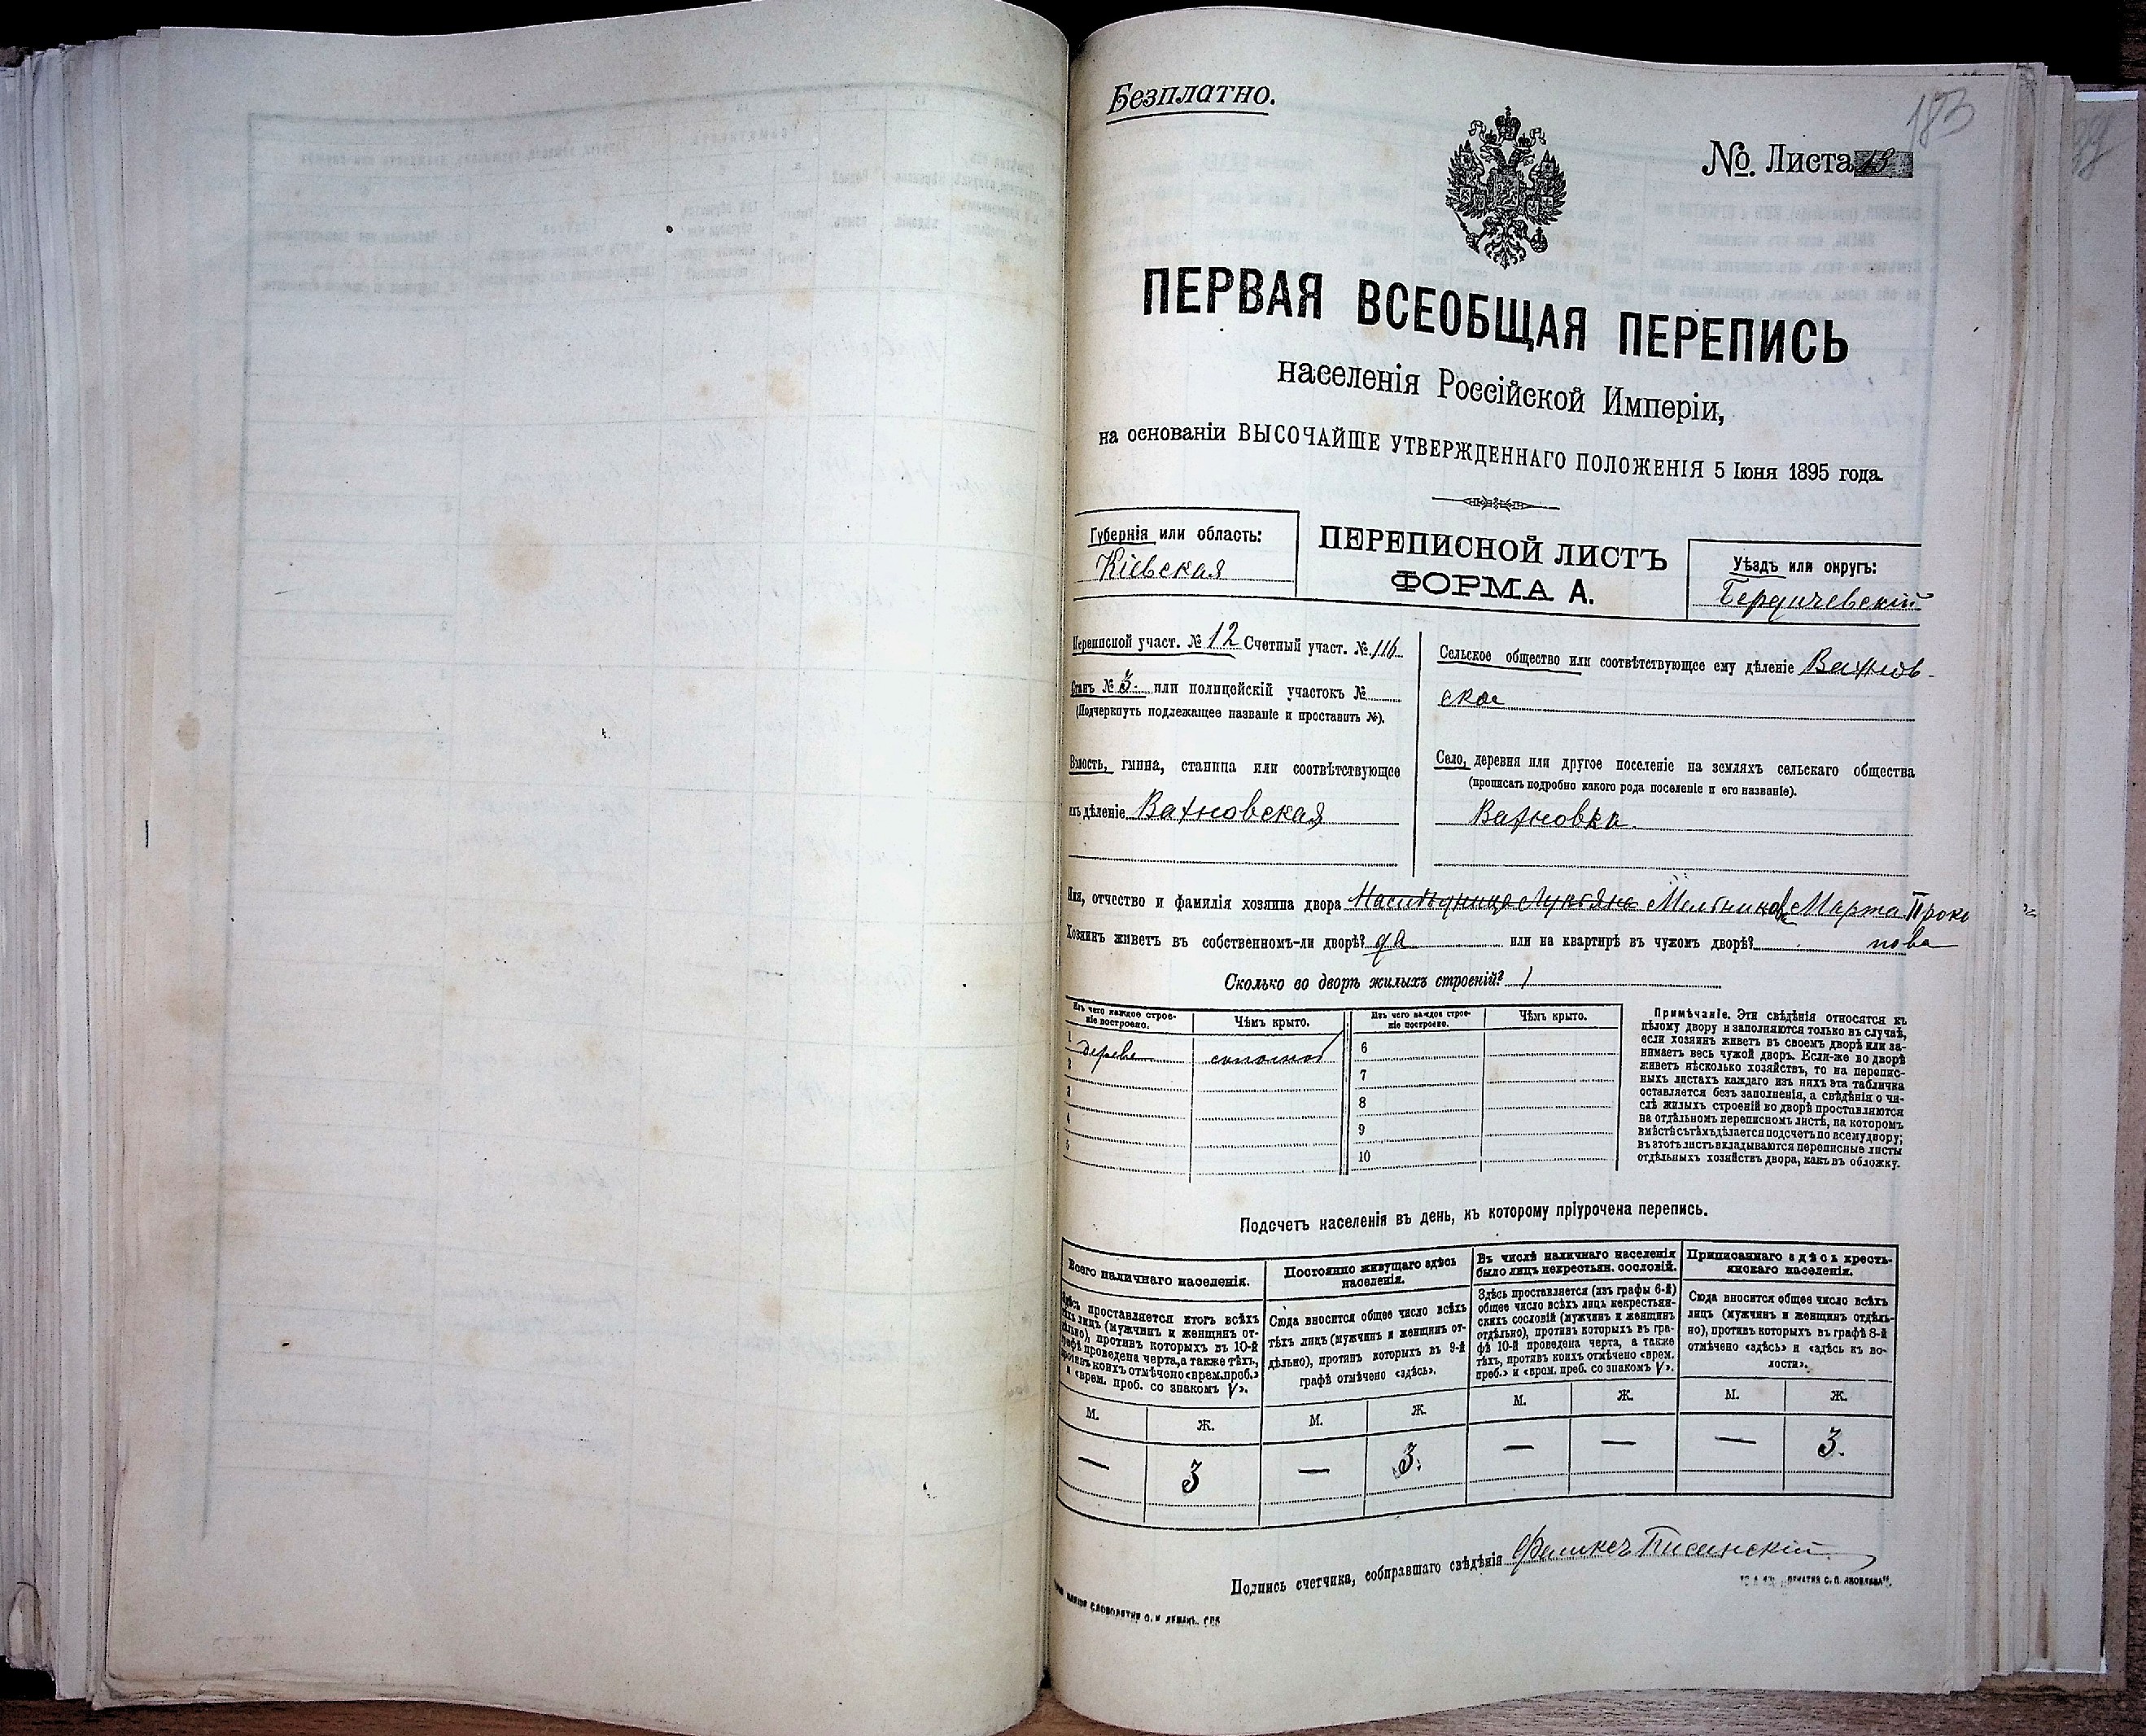 Безплатно.
183
№. Листа
ПЕРВАЯ ВСЕОБЩАЯ ПЕРЕПИСЬ
населенія Россійской Имперіи,
на основаніи ВЫСОЧАЙШЕ УТВЕРЖДЕННАГО ПОЛОЖЕНІЯ 5 Іюня 1895 года.
Губернія или область:
Кіевская
ПЕРЕПИСНОЙ ЛИСТЪ
ФОРМА А.
Уѣздъ или округъ:
Бердичевскій
Переписной участ. № 12 Счетный участ. № 116
Станъ № 3. или полицейскій участокъ №
(Подчеркнуть подлежащее названіе и проставить №).
Волость, гмина, станица или соотвѣтствующее
имъ дѣленіе Вахновская
Сельское общество или соотвѣтствующее ему дѣленіе Вахнов-
ское
Село, деревня или другое поселеніе на земляхъ сельскаго общества
(прописать подробно какого рода поселеніе и его названіе).
Вахновка
Имя, отчество и фамилія хозяина двора Мельникова Марта Проко
пова
Хозяинъ живетъ въ собственномъ-ли дворѣ? да или на квартирѣ въ чужомъ дворѣ?
Сколько во дворѣ жилыхъ строеній? 1
Изъ чего каждое строе-
ніе построено.
Чѣмъ крыто.
Изъ чего каждое строе-
ніе построено.
Чѣмъ крыто.
1 дерева соломой
2
3
4
5
6
7
8
9
10
Примѣчаніе. Эти свѣдѣнія относятся къ
цѣлому двору и заполняются только въ случаѣ,
если хозяинъ живетъ въ своемъ дворѣ или за-
нимаетъ весь чужой дворъ. Если-же во дворѣ
живетъ нѣсколько хозяйствъ, то на перепис-
ныхъ листахъ каждаго изъ нихъ эта табличка
оставляется безъ заполненія, а свѣдѣнія о чи-
слѣ жилыхъ строеній во дворѣ проставляются
на отдѣльномъ переписномъ листѣ, на которомъ
вмѣстѣ съ тѣмъ дѣлается подсчетъ по всему двору;
въ этотъ листъ вкладываются переписные листы
отдѣльныхъ хозяйствъ двора, какъ въ обложку.
Подсчетъ населенія въ день, къ которому пріурочена перепись.
Всего наличнаго населенія.
Здѣсь проставляется итогъ всѣхъ
тѣхъ лицъ (мужчинъ и женщинъ от-
дѣльно), противъ которыхъ въ 10-й
графѣ проведена черта, а также тѣхъ,
противъ коихъ отмѣчено «врем. проб.»
и «врем. проб. со знакомъ V».
Постоянно живущаго здѣсь
населенія.
Сюда вносится общее число всѣхъ
тѣхъ лицъ (мужчинъ и женщинъ от-
дѣльно), противъ которыхъ въ 9-й
графѣ отмѣчено «здѣсь».
Въ числѣ наличнаго населенія
было лицъ некрестьян. сословій.
Здѣсь проставляется (изъ графы 6-й)
общее число всѣхъ лицъ некрестьян-
скихъ сословій (мужчинъ и женщинъ
отдѣльно), противъ которыхъ въ гра-
фѣ 10-й проведена черта, а также
тѣхъ, противъ коихъ отмѣчено «врем.
проб.» и «врем. проб. со знакомъ V».
Приписаннаго здѣсь кресть-
янскаго населенія.
Сюда вносится общее число всѣхъ
лицъ (мужчинъ и женщинъ отдѣль-
но), противъ которыхъ въ графѣ 8-й
отмѣчено «здѣсь» и «здѣсь къ во-
лости».
М. Ж. М. Ж. М. Ж. М. Ж.
— 3 — 3. — — — 3.
Подпись счетчика, собиравшаго свѣдѣнія Феликсъ Писинскій